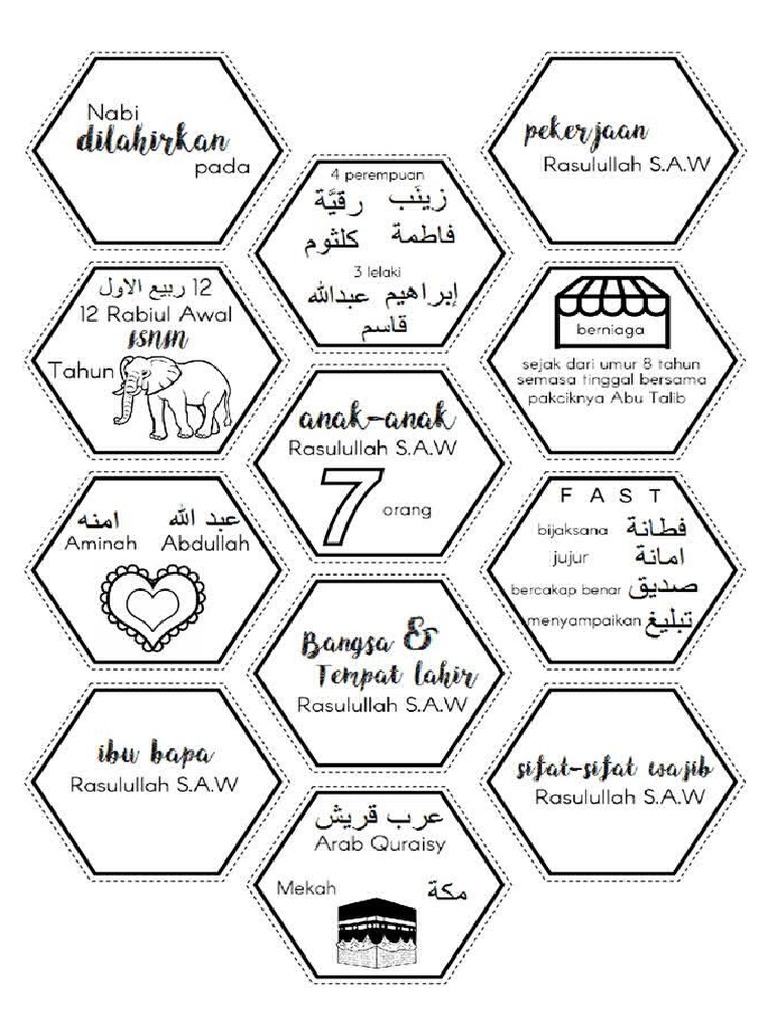 Nabi
dilahirkan
pada
pekerjaan
Rasulullah S.A.W
4 perempuan
رقيَّة زينَب
كلثوم فاطمة
3 lelaki
عبدالله إبراهيم
قاسم
12 ربيع الاول
12 Rabiul Awal
ISNIN
Tahun
berniaga
sejak dari umur 8 tahun
semasa tinggal bersama
pakciknya Abu Talib
anak-anak
Rasulullah S.A.W
7 orang
امنه عبد الله
Aminah Abdullah
F A S T
bijaksana فطانة
jujur امانة
bercakap benar صديق
menyampaikan تبليغ
Bangsa &
Tempat lahir
Rasulullah S.A.W
ibu bapa
Rasulullah S.A.W
sifat-sifat wajib
Rasulullah S.A.W
عرب قريش
Arab Quraisy
Mekah مكة